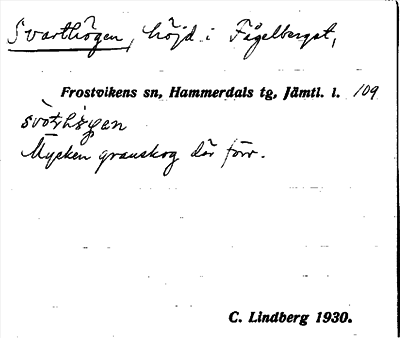 Svarthögen, höjd i Fågelberget,
Frostvikens sn, Hammerdals tg, Jämtl. l. 109
Mycken granskog där förr.
C. Lindberg 1930.